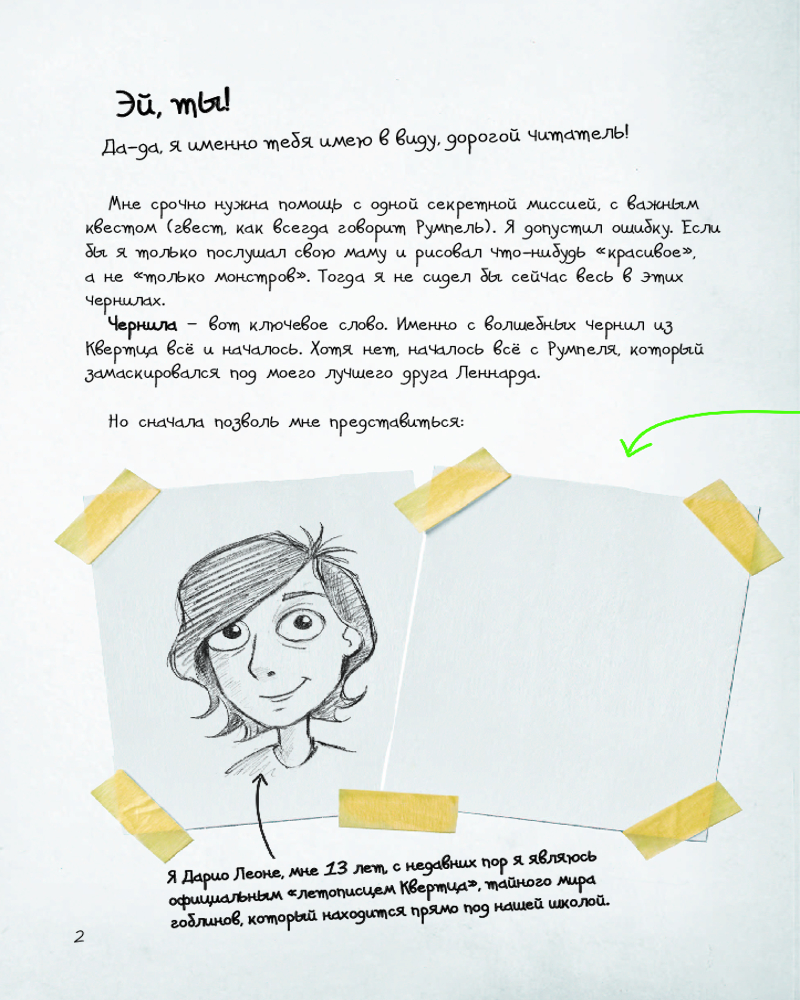 Эй, ты!
Да-да, я именно тебя имею в виду, дорогой читатель!
Мне срочно нужна помощь с одной секретной миссией, с важным
квестом (гвест, как всегда говорит Румпель). Я допустил ошибку. Если
бы я только послушал свою маму и рисовал что-нибудь «красивое»,
а не «только монстров». Тогда я не сидел бы сейчас весь в этих
чернилах.
Чернила – вот ключевое слово. Именно с волшебных чернил из
Квертца всё и началось. Хотя нет, началось всё с Румпеля, который
замаскировался под моего лучшего друга Леннарда.
Но сначала позволь мне представиться:
Я Дарио Леоне, мне 13 лет, с недавних пор я являюсь
официальным «летописцем Квертца», тайного мира
гоблинов, который находится прямо под нашей школой.
2